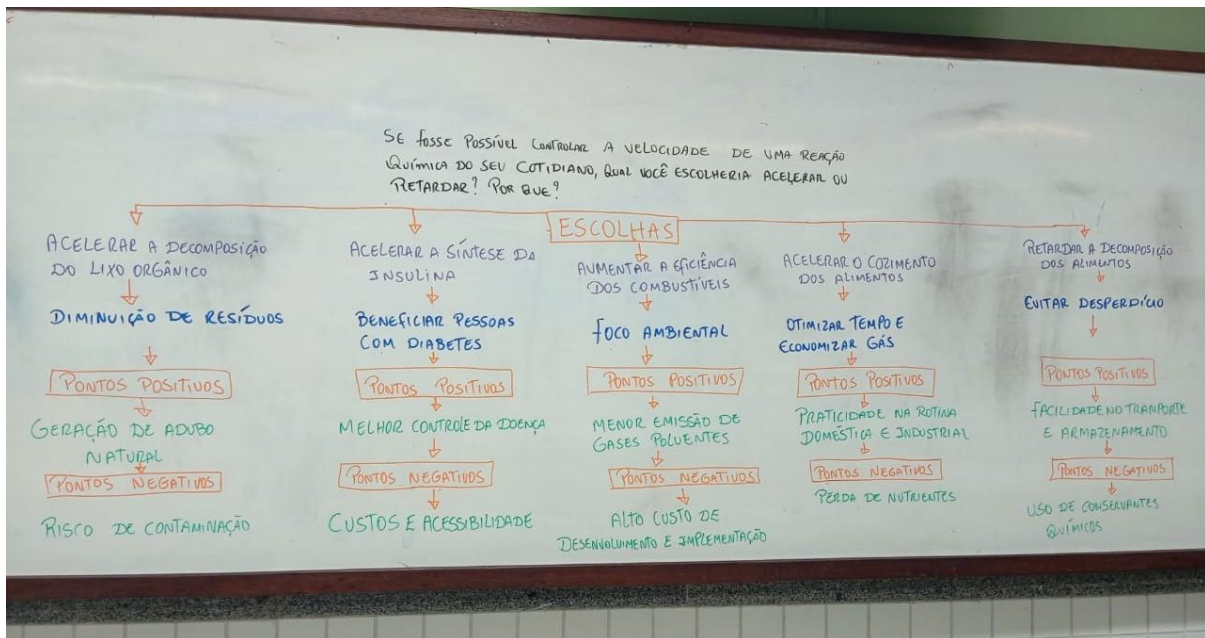 SE FOSSE POSSÍVEL CONTROLAR A VELOCIDADE DE UMA REAÇÃO
QUÍMICA DO SEU COTIDIANO, QUAL VOCÊ ESCOLHERIA ACELERAR OU
RETARDAR? POR QUE?
ESCOLHAS
ACELERAR A DECOMPOSIÇÃO
DO LIXO ORGÂNICO
DIMINUIÇÃO DE RESÍDUOS
PONTOS POSITIVOS
GERAÇÃO DE ADUBO
NATURAL
PONTOS NEGATIVOS
RISCO DE CONTAMINAÇÃO
ACELERAR A SÍNTESE DA
INSULINA
BENEFICIAR PESSOAS
COM DIABETES
PONTOS POSITIVOS
MELHOR CONTROLE DA DOENÇA
PONTOS NEGATIVOS
CUSTOS E ACESSIBILIDADE
AUMENTAR A EFICIÊNCIA
DOS COMBUSTÍVEIS
FOCO AMBIENTAL
PONTOS POSITIVOS
MENOR EMISSÃO DE
GASES POLUENTES
PONTOS NEGATIVOS
ALTO CUSTO DE
DESENVOLVIMENTO E IMPLEMENTAÇÃO
ACELERAR O COZIMENTO
DOS ALIMENTOS
OTIMIZAR TEMPO E
ECONOMIZAR GÁS
PONTOS POSITIVOS
PRATICIDADE NA ROTINA
DOMÉSTICA E INDUSTRIAL
PONTOS NEGATIVOS
PERDA DE NUTRIENTES
RETARDAR A DECOMPOSIÇÃO
DOS ALIMENTOS
EVITAR DESPERDÍCIO
PONTOS POSITIVOS
FACILIDADE NO TRANPORTE
E ARMAZENAMENTO
PONTOS NEGATIVOS
USO DE CONSERVANTES
QUÍMICOS